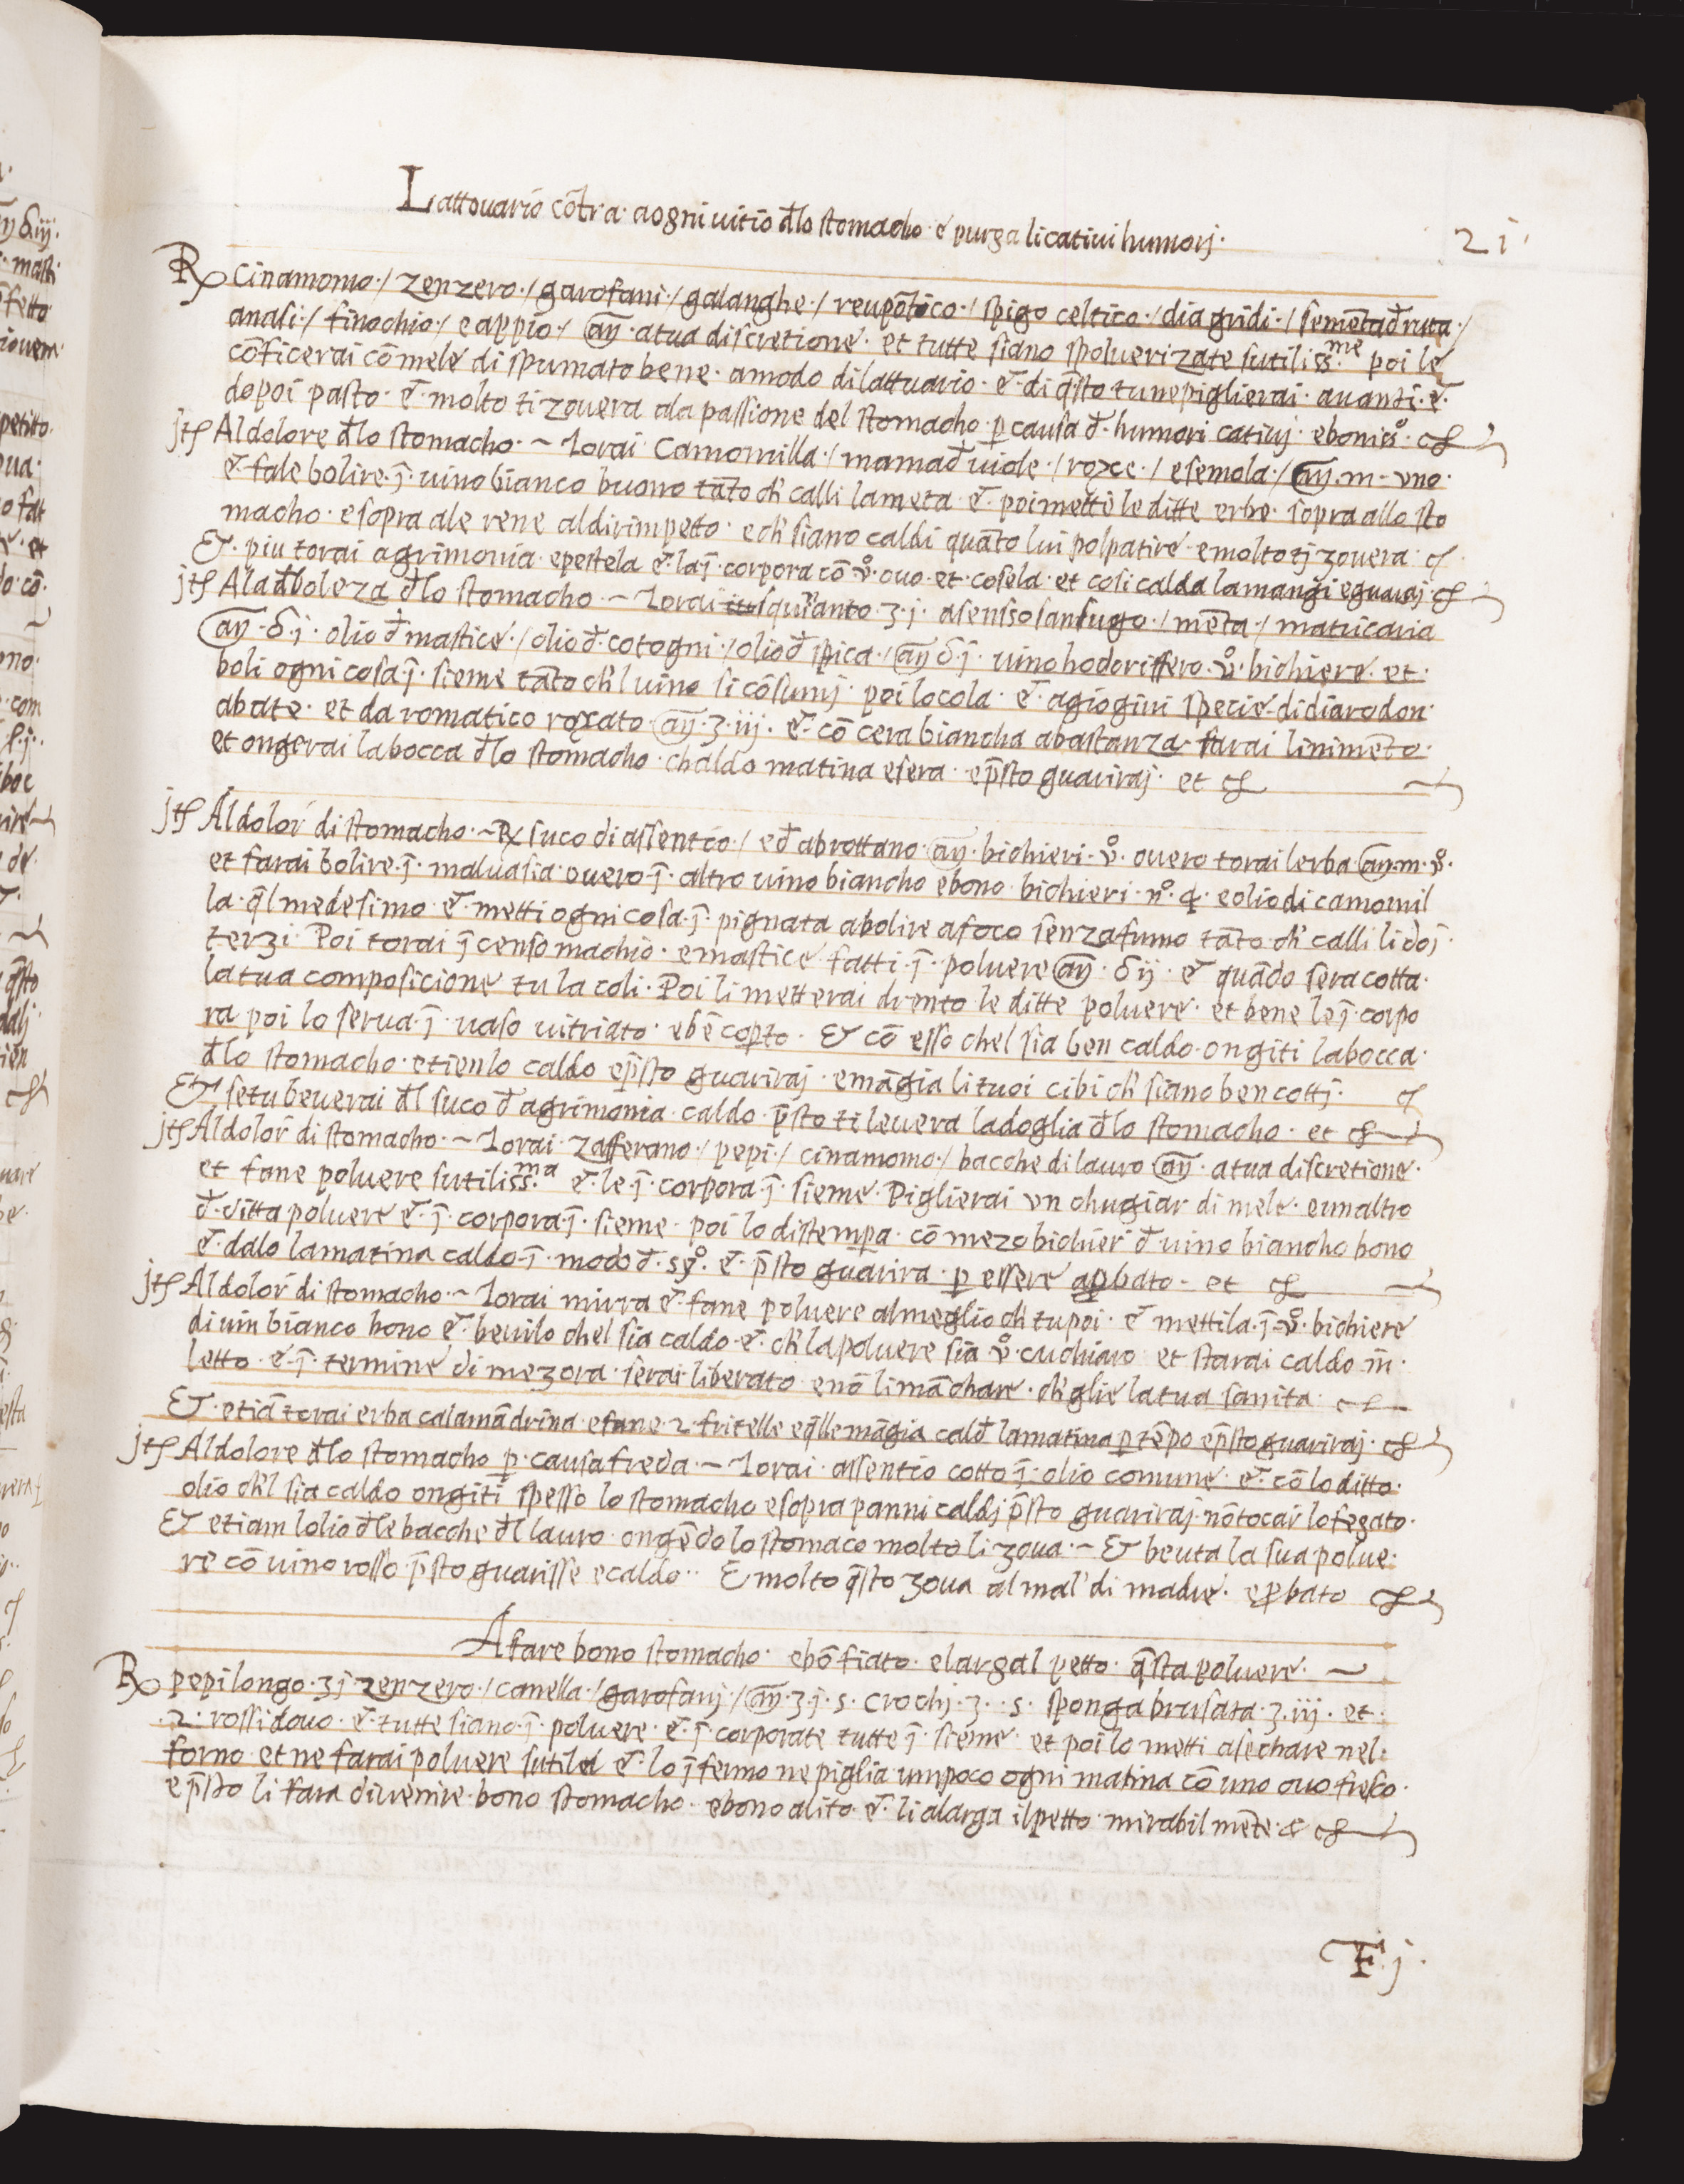 Lattouario cōtra aogni uitio đlo stomacho e purga li catiui humorj.
21
Rx Cinamomo / zenzero / garofani / galanghe / reupōtico / spigo celtico / dia gridi / semēta đ ruta /
anasi / finochio / e appio / añ a tua discretione et tutte siano spoluerizate sutiliss.me poi le
cōficerai cō mele di spumato bene amodo di lattuario e di q̄sto tu ne piglierai auanti e
dopoi pasto e molto ti zouera ala passione del stomacho p causa đ humori catiuj
jts Al dolore đlo stomacho ~ Torai Camomilla / mamađ uiole / roxe / e semola / añ m uno
e fale bolire j̄ uino bianco buono tāto ch' calli la meta e poi metti le ditte erbe sopra allo sto
macho e sopra ale rene al dirimpetto e ch' siano caldi quāto lui pol patire e molto tj zouera
Et piu torai agrimonia e pestela e la j̄ corpora cō v̊ ouo et cosela et cosi calda la mangi e guaraj
jts Ala đboleza đlo stomacho ~ Torai squinanto ʒ j asensso san sugo / mēta / matricaria
añ δ j olio đ mastice / olio đ cotogni / olio đ spica / añ δ j uino hodoriffero v̊ bichiere et
boli ogni cosa j̄ sieme tāto ch'l uino si cōsumj poi lo cola e agiogini specie di diarodon
abate et da romatico roxato añ ʒ iij e cō cera biancha abastanza farai linimēto
et ongerai la bocca đlo stomacho chaldo matina e sera e p̄sto guariraj et
jts Al dolor di stomacho ~ Rx suco di assentio / e đ abrottano añ bichieri v̊ ouero torai lerba añ m v̊
et farai bolire j̄ maluasia ouero j̄ altro uino biancho e bono bichieri n° 4 e olio di camomil
la q̄l medesimo e metti ogni cosa j̄ pignata a bolire a foco senza fumo tāto ch' calli li doj
terzi Poi torai j̄ censo maschio e mastice fatti j̄ poluere añ δ ij e quādo sera cotta
la tua composicione tu la coli Poi li metterai drento le ditte poluere et bene le j̄ corpo
ra poi lo serua j̄ uaso uitriato e bē copto Et cō esso chel sia ben caldo ongiti la bocca
đlo stomacho e tienlo caldo e p̄sto guariraj e māgia li tuoi cibi ch' siano ben cottj
Et se tu beuerai đl suco đ agrimonia caldo p̄sto ti leuera la doglia đlo stomacho et
jts Al dolor di stomacho ~ Torai zafferano / pepi / cinamomo / bacche di lauro añ a tua discretione
et fane poluere sutiliss.ma e le j̄ corpora j̄ sieme Piglierai un chugiar di mele e unaltro
đ ditta poluere e j̄ corpora j̄ sieme poi lo distempa cō mezo bichier đ uino biancho bono
e dalo la matina caldo j̄ modo đ sy° e p̄sto guarira p essere apbato et
jts Al dolor di stomacho ~ Torai mirra e fane poluere al meglio ch' tu poi e mettila j̄ v̊ bichiere
di uin bianco bono e beuilo chel sia caldo e ch' la poluere sia v̊ cuchiaro et starai caldo in
letto e j̄ termine di mezora serai liberato e nō li māchare ch' glie la tua sanita
Et etiā torai erba calamādrina e fane 2 fritelle e q̄lle māgia calđ la matina p tēpo e p̄sto guariraj
jts Al dolore đlo stomacho p causa freda ~ Torai assentio cotto j̄ olio comune e cō lo ditto
olio ch'l sia caldo ongiti spesso lo stomacho e sopra panni caldj p̄sto guariraj nō tocar lo fegato
Et etiam lolio đle bacche đl lauro ongēdo lo stomaco molto li zoua ~ Et beuta la sua polue
re cō uino rosso p̄sto guarisse e caldo E molto q̄sto zoua al mal di madre e pbato
A fare bono stomacho e bō fiato e larga l petto q̄sta poluere ~
Rx pepi longo ʒ j zenzero / canella / garofanj / añ ʒ j s crochj ʒ s sponga brusata ʒ iij et
2 rossi douo e tutte siano j̄ poluere e j̄ corporate tutte j̄ sieme et poi lo metti a sechare nel
forno et ne farai poluere sutile e lo j̄fermo ne piglia un poco ogni matina cō uno ouo fresco
e p̄sto li fara diuenire bono stomacho e bono alito e li alarga il petto mirabil mēte
F j